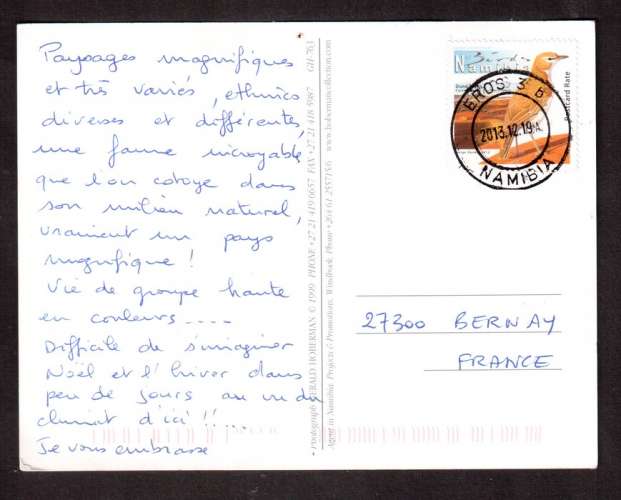 Paysages magnifiques
et très variés, ethnies
diverses et différentes,
une faune incroyable
que l'on cotoye dans
son milieu naturel,
vraiment un pays
magnifique !
Vie de groupe haute
en couleurs ....
Difficile de s'imaginer
Noël et l'hiver dans
peu de jours au vu du
climat d'ici !!....
Je vous embrasse
Photograph GERALD HOBERMAN © 1999 PHONE +27 21 419 6657 FAX +27 21 418 5987 GH-763
Agent in Namibia: Projects & Promotions, Windhoek Phone +264 61 255715/6 www.hobermancollection.com
Namibia
Postcard Rate
EROS 3 B
2013.12.19
NAMIBIA
27300 BERNAY
FRANCE